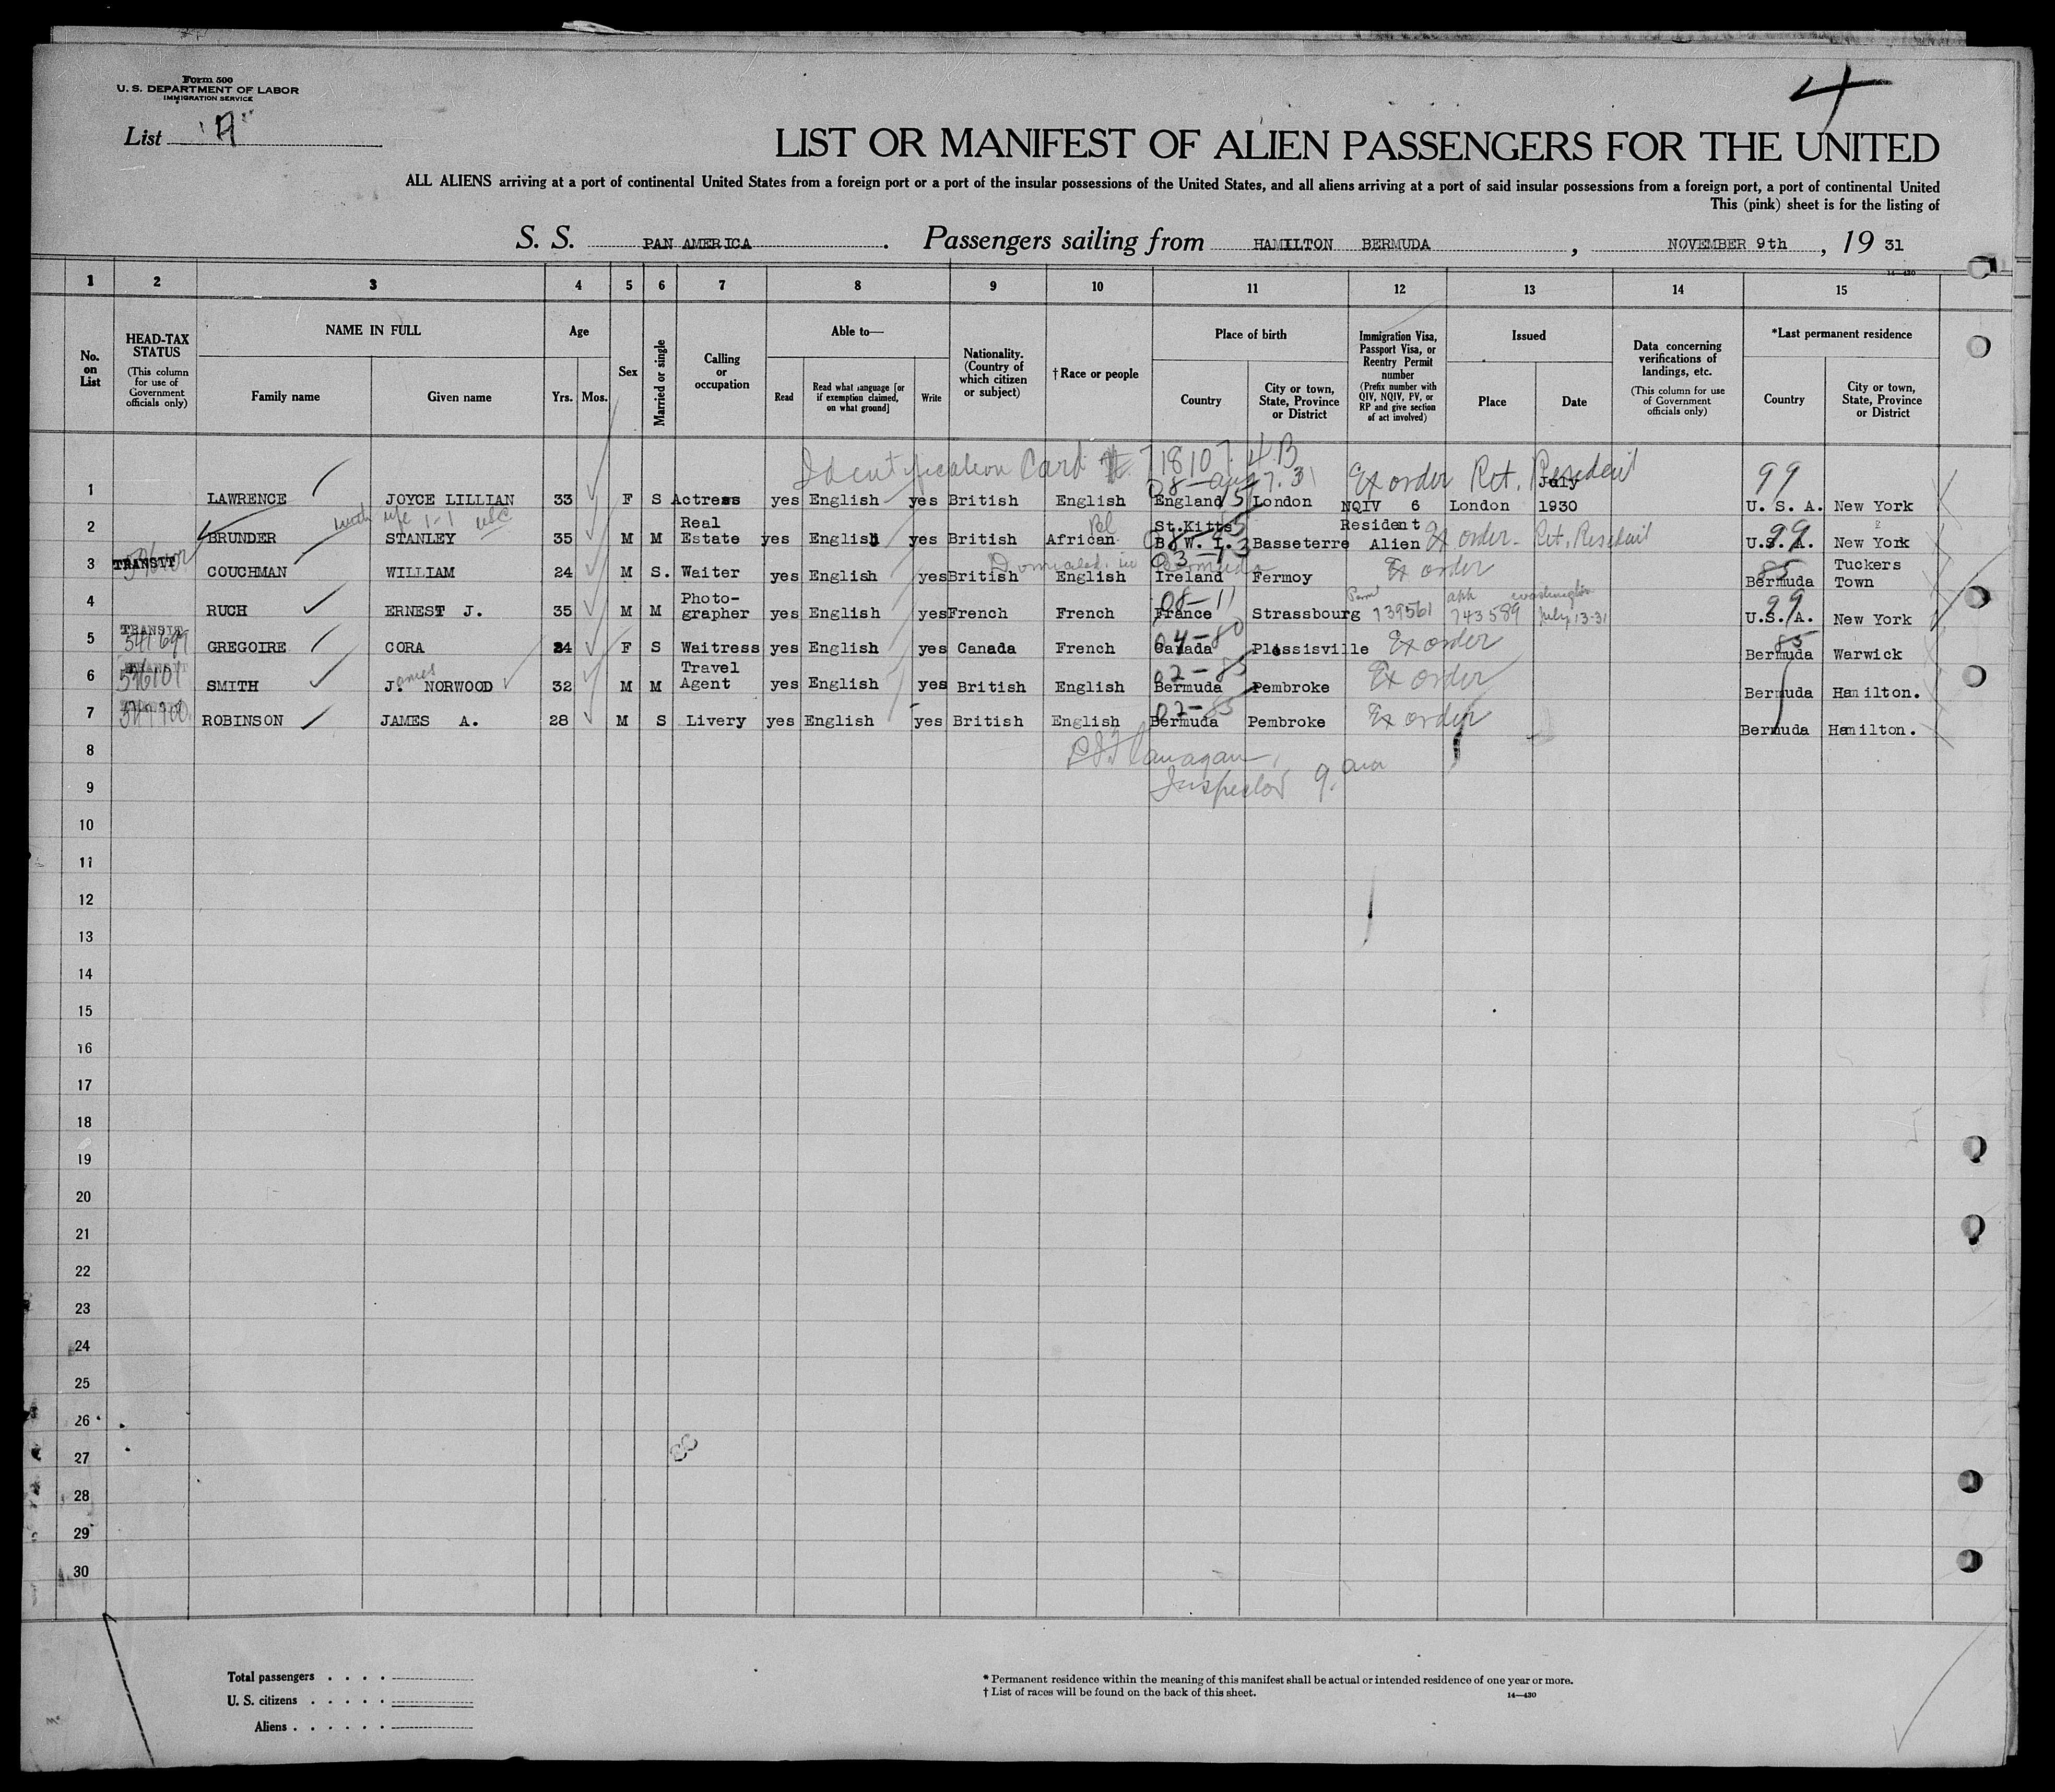 Form 500
U. S. DEPARTMENT OF LABOR
IMMIGRATION SERVICE
4
List "A"
LIST OR MANIFEST OF ALIEN PASSENGERS FOR THE UNITED
ALL ALIENS arriving at a port of continental United States from a foreign port or a port of the insular possessions of the United States, and all aliens arriving at a port of said insular possessions from a foreign port, a port of continental United
This (pink) sheet is for the listing of
S. S. PAN AMERICA. Passengers sailing from HAMILTON BERMUDA, NOVEMBER 9th, 19 31
14-430
1 2 3 4 5 6 7 8 9 10 11 12 13 14 15
No. on List
HEAD-TAX STATUS (This column for use of Government officials only)
NAME IN FULL
Family name
Given name
Age
Yrs. Mos.
Sex
Married or single
Calling or occupation
Able to—
Read
Read what language [or if exemption claimed, on what ground]
Write
Nationality. (Country of which citizen or subject)
†Race or people
Place of birth
Country
City or town, State, Province or District
Immigration Visa, Passport Visa, or Reentry Permit number (Prefix number with QIV, NQIV, PV, or RP and give section of act involved)
Issued
Place
Date
Data concerning verifications of landings, etc. (This column for use of Government officials only)
*Last permanent residence
Country
City or town, State, Province or District
Identification Card # 718107. 4B
08-15 Aug 7. 31 Ex order Ret. Resident 99
1 LAWRENCE JOYCE LILLIAN 33 F S Actress yes English yes British English England London NQIV 6 London July 1930 U. S. A. New York
wife 1-1 USC
2 BRUNDER STANLEY 35 M M Real Estate yes English yes British African Bl St.Kitts B. W. I. Basseterre Resident Alien Ex order. Ret. Resident 99 U.S. A. New York
Domiciled in Bermuda
3 TRANSIT COUCHMAN WILLIAM 24 M S. Waiter yes English yes British English Ireland Fermoy Ex order 85 Bermuda Tuckers Town
4 RUCH ERNEST J. 35 M M Photo-grapher yes English yes French French 08-11 France Strassbourg Permit 739561 743589 Washington July 13-31 99 U.S. A. New York
5 TRANSIT 541699 GREGOIRE CORA 24 F S Waitress yes English yes Canada French 04-80 Canada Plessisville Ex order 85 Bermuda Warwick
6 TRANSIT SMITH J. James NORWOOD 32 M M Travel Agent yes English yes British English 02-85 Bermuda Pembroke Ex order Bermuda Hamilton.
7 ROBINSON JAMES A. 28 M S Livery yes English yes British English 02-85 Bermuda Pembroke Ex order Bermuda Hamilton.
8 Flanagan,
9 Inspector 9.
10
11
12
13
14
15
16
17
18
19
20
21
22
23
24
25
26
27
28
29
30
Total passengers . . . .
U. S. citizens . . . . .
Aliens . . . . . .
* Permanent residence within the meaning of this manifest shall be actual or intended residence of one year or more.
† List of races will be found on the back of this sheet.
14—430